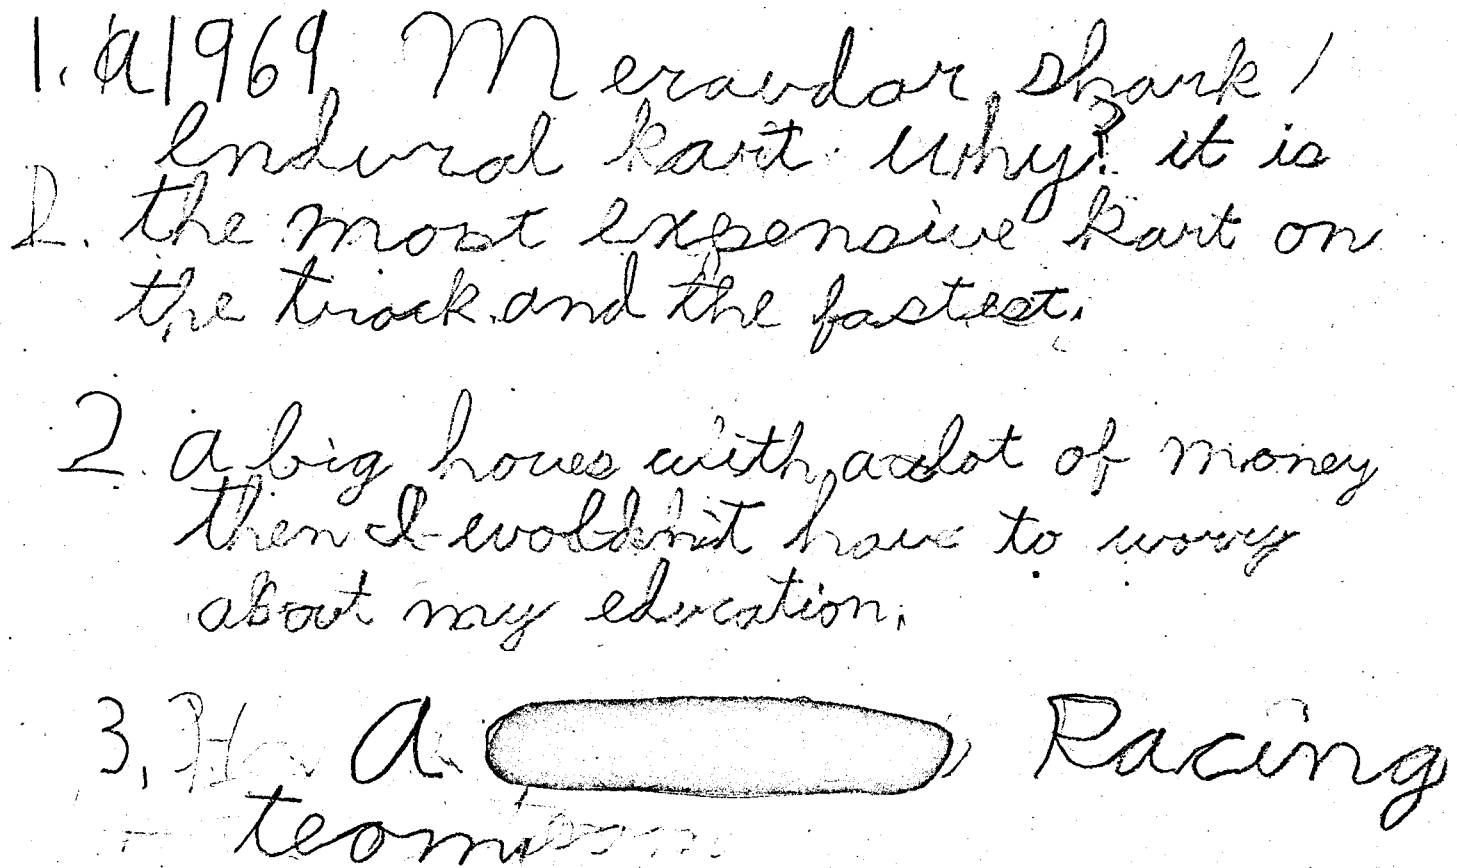 1. a 1969 Meravdar shark /
Endural kart. Why? it is
2. the most expensive kart on
the track and the fastest.
2. a big houes with a lot of money
then I woldn't have to worry
about my education.
3. a Racing
team